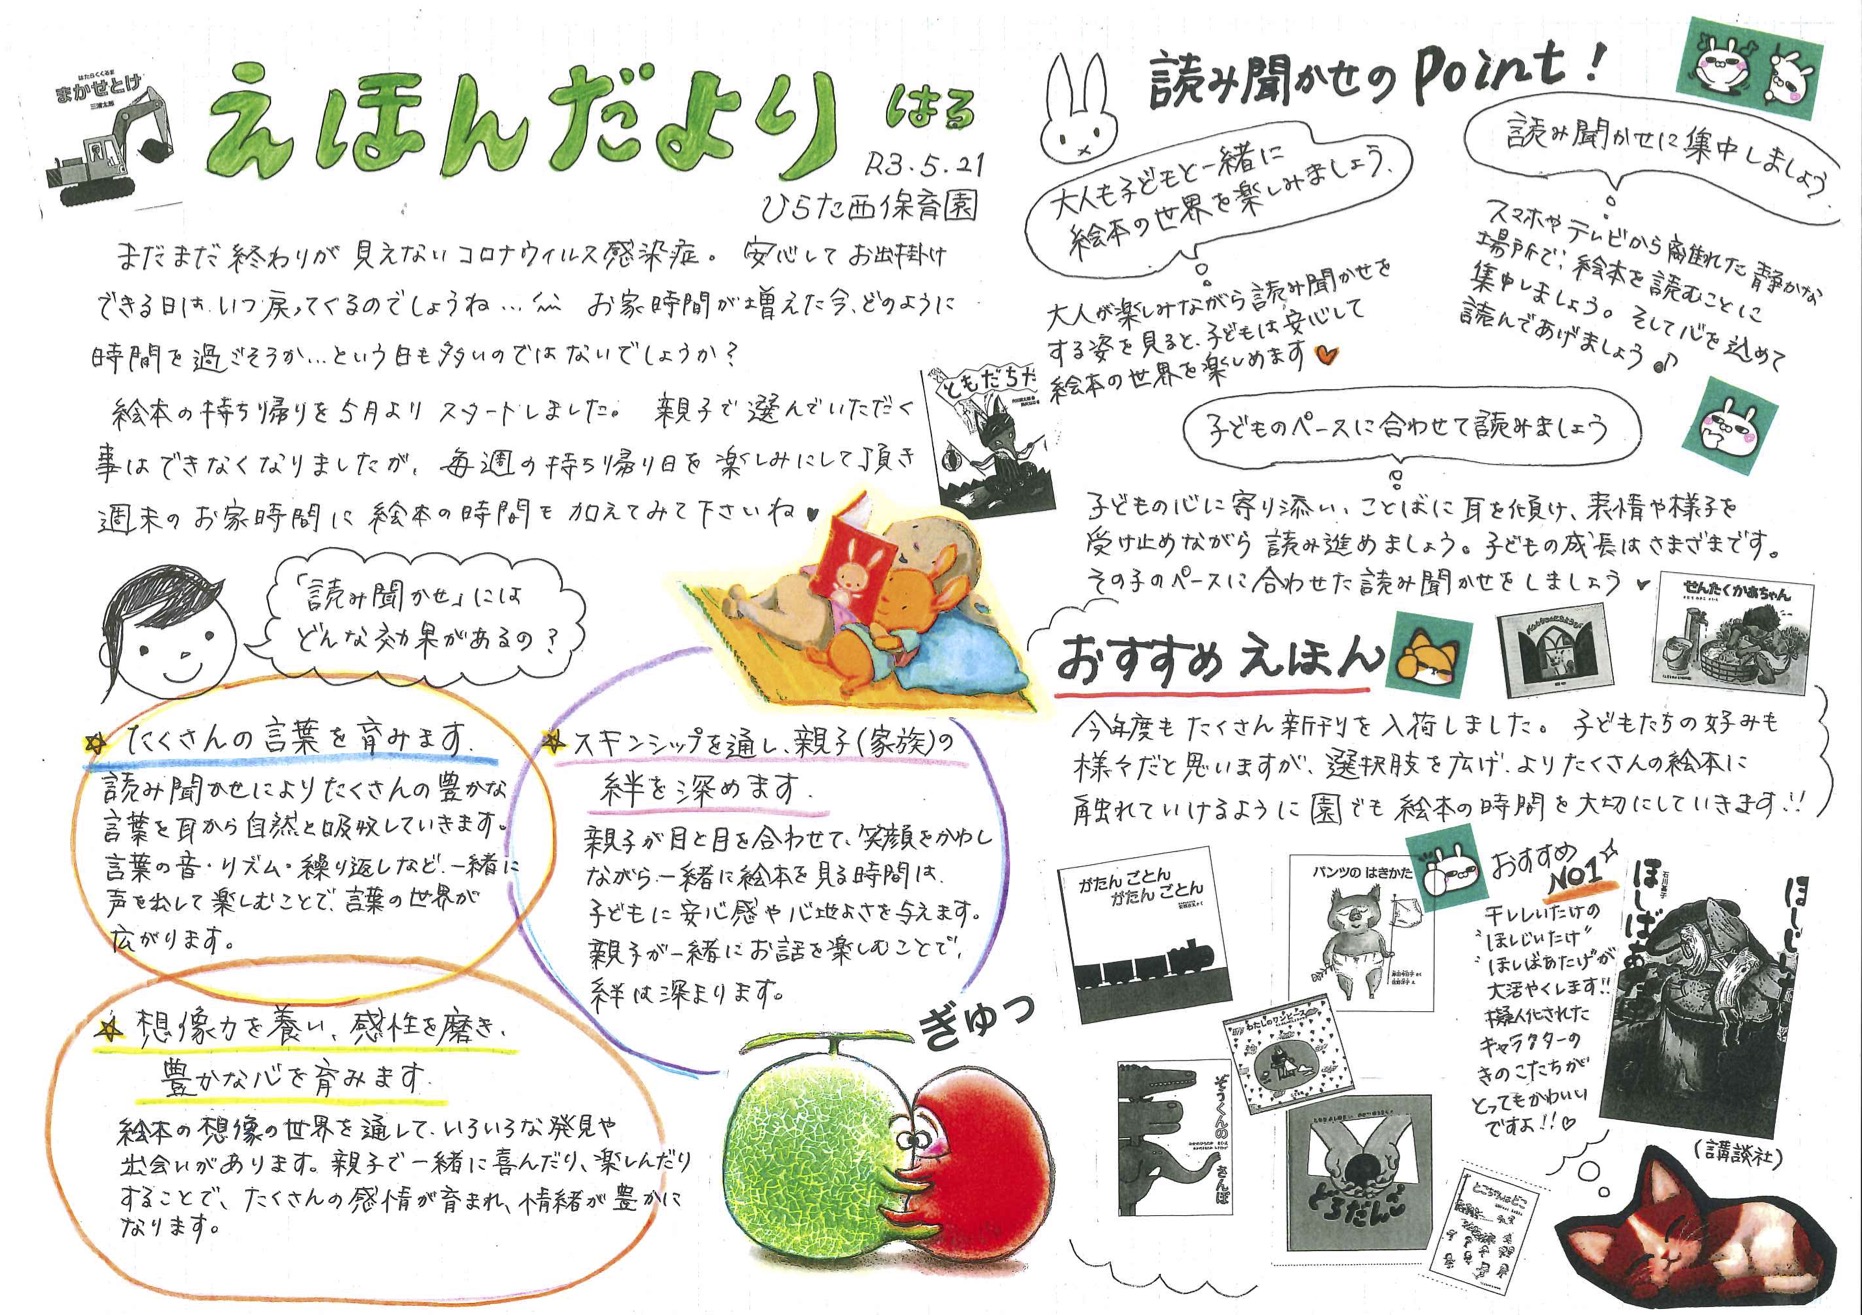 はたらくくるま
まかせとけ
三浦太郎
えほんだより はる
R3.5.21
ひらた西保育園
まだまだ終わりが見えないコロナウィルス感染症。安心してお出掛け
できる日は、いつ戻ってくるのでしょうね… お家時間が増えた今、どのように
時間を過ごそうか…という日も多いのではないでしょうか？
絵本の持ち帰りを5月よりスタートしました。親子で選んでいただく
事はできなくなりましたが、毎週の持ち帰り日を楽しみにして頂き
週末のお家時間に絵本の時間も加えてみて下さいね♥
ともだちや
「読み聞かせ」には
どんな効果があるの？
☆たくさんの言葉を育みます。
読み聞かせによりたくさんの豊かな
言葉を耳から自然と吸収していきます。
言葉の音・リズム・繰り返しなど、一緒に
声を出して楽しむことで、言葉の世界が
広がります。
☆スキンシップを通し、親子(家族)の
絆を深めます。
親子が目と目を合わせて、笑顔をかわし
ながら一緒に絵本を見る時間は、
子どもに安心感や心地よさを与えます。
親子が一緒にお話を楽しむことで、
絆は深まります。
☆想像力を養い、感性を磨き、
豊かな心を育みます。
絵本の想像の世界を通して、いろいろな発見や
出会いがあります。親子で一緒に喜んだり、楽しんだり
することで、たくさんの感情が育まれ、情緒が豊かに
なります。
ぎゅっ
読み聞かせのPoint！
大人も子どもと一緒に
絵本の世界を楽しみましょう。
大人が楽しみながら読み聞かせを
する姿を見ると、子どもは、安心して
絵本の世界を楽しめます♥
読み聞かせに集中しましょう
スマホやテレビから離れた静かな
場所で、絵本を読むことに
集中しましょう。そして心を込めて
読んであげましょう♪
子どものペースに合わせて読みましょう
子どもの心に寄り添い、ことばに耳を傾け、表情や様子を
受け止めながら読み進めましょう。子どもの成長はさまざまです。
その子のペースに合わせた読み聞かせをしましょう♥
おすすめえほん
せんたくかあちゃん
今年度もたくさん新刊を入荷しました。子どもたちの好みも
様々だと思いますが、選択肢を広げ、よりたくさんの絵本に
触れていけるように園でも絵本の時間を大切にしていきます!!
がたん ごとん
がたん ごとん
パンツの はきかた
岸田今日子 さく
佐野洋子 え
わたしのワンピース
ぞうくんの さんぽ
どろだんご
とこちゃんはどこ
おすすめ
NO1
干ししいたけの
“ほしじいたけ”
“ほしばあたけ”が
大活やくします!!
擬人化された
キャラクターの
きのこたちが
とってもかわいい
ですよ!!♡
石川基子
(講談社)